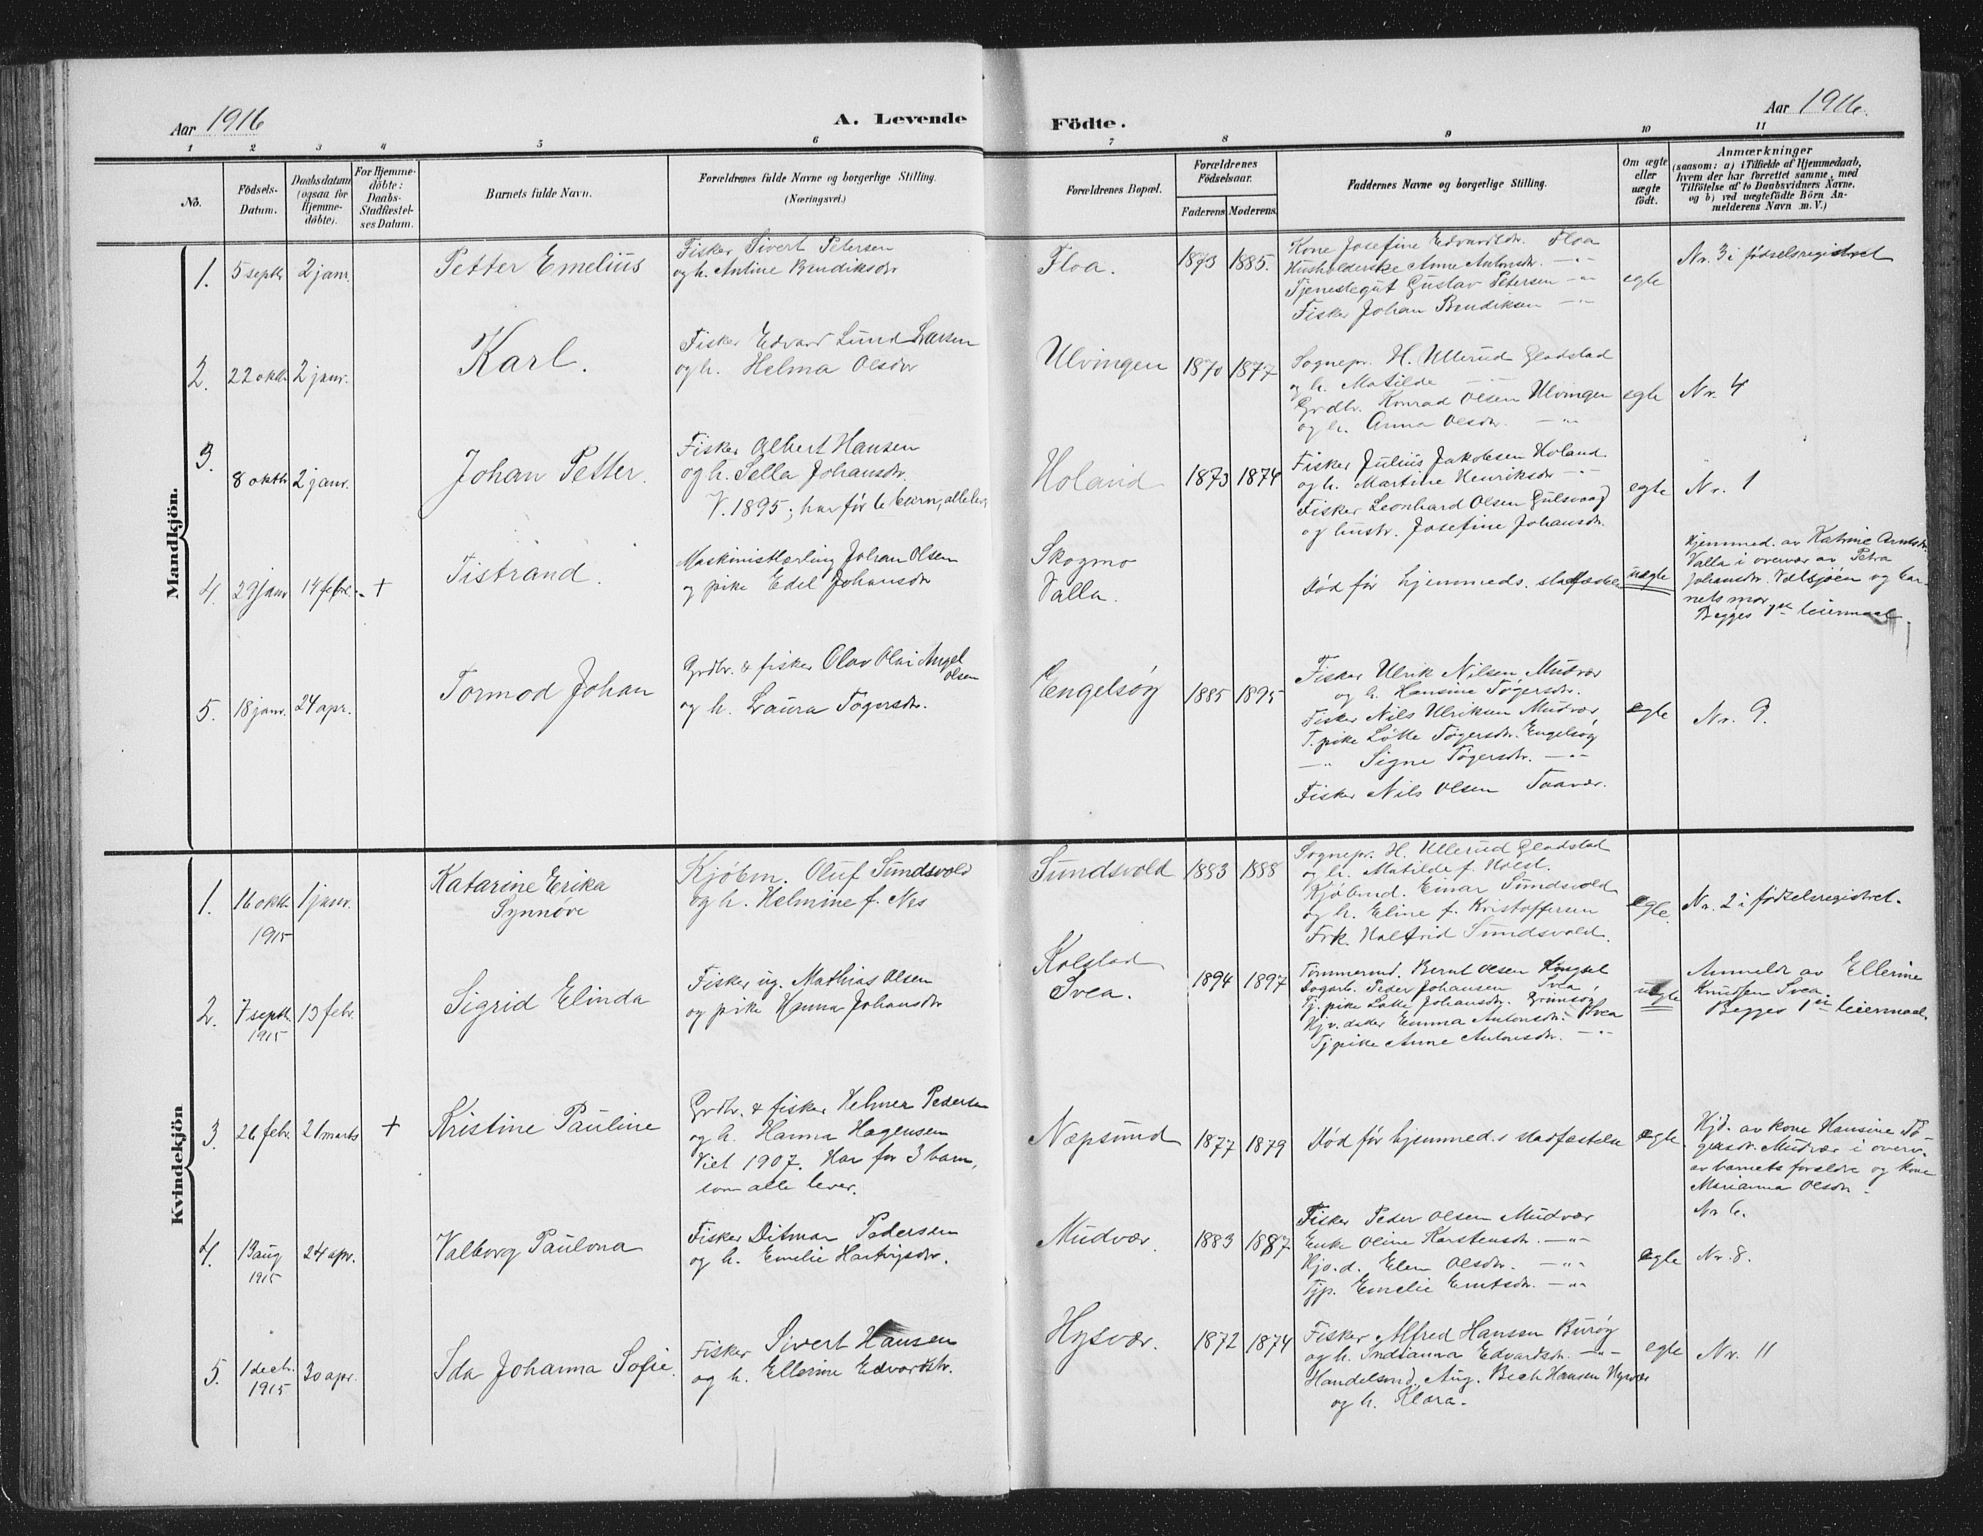 Aar 1916
A. Levende
Födte.
Aar 1916.
1 2 3 4 5 6 7 8 9 10 11
No.
Födsels-
Datum.
Daabsdatum
(ogsaa for
Hjemme-
döbte).
For Hjemme-
döbte:
Daabs-
Stadfæstel-
ses Datum.
Barnets fulde Navn.
Forældrenes fulde Navne og borgerlige Stilling.
(Næringsvei.)
Forældrenes Bopæl.
Forældrenes
Födselsaar.
Faderens Moderens
Faddernes Navne og borgerlige Stilling.
Om ægte
eller
uægte
födt.
Anmærkninger
(saasom: a) i Tilfælde af Hjemmedaab,
hvem der har forrettet samme, med
Tilföielse af to Daabsvidners Navne,
og b) ved uægtefödte Börn An-
melderens Navn m. V.)
Mandkjön.
1. 5 septbr 2 janr.
Petter Emelius
Fisker Sivert Petersen
og h. Antine Bendiksdr
Floa.
1873 1885.
Kone Josefine Edvardsdr. Floa
Husholderske Anne Antonsdr. —"—
Tjenestegut Gustav Petersen —"—
Fisker Johan Bendiksen —"—
egte
Nr. 3 i fødselsregistret
2. 22 oktbr 2 janr.
Karl.
Fisker Edvard Lund Larsen
og h. Helma Olsdr
Ulvingen
1870 1877
Sognepr. H. Ullerud Gladstad
og h. Matilde —"—
Grdbr. Konrad Olsen Ulvingen
og h. Anna Olsdr. —"—
egte
Nr. 4
3. 8 oktbr 2 janr.
Johan Petter.
Fisker Albert Hansen
og h. Sella Johansdr.
V. 1895; har før 6 barn, alle lev.
Holand
1873 1874
Fisker Julius Jakobsen Holand.
og h. Martine Henriksdr —"—
Fisker Leonhard Olsen Gulsvaag
og hustr. Josefine Johansdr.
egte
Nr. 1
4. 29 janr 14 febr. +
Tistrand.
Maskinistlærling Johan Olsen
og pike Edel Johansdr
Skogmo
Valla.
Død før hjemmeds. stadfæstelse
uegte
Hjemmed. av Katrine Arntsdr.
Valla i overvær av Petra
Johansdr. Vetsjøen og bar-
nets mor
Begges 1ste leiermaal.
5. 18 janr. 24 apr.
Tormod Johan
Grdbr. & fisker Olav Olai Angel
Olsen
og h. Laura Tøgersdr.
Engelsøy
1885 1895
Fisker Ulrik Nilsen Mudvær
og h. Hansine Tøgersdr.
Fisker Nils Ulriksen Mudvær
T. pike Lotte Tøgersdr. Engelsøy
—"— Signe Tøgersdr. —"—
Fisker Nils Olsen Taavær.
egte
Nr. 9.
Kvindekjön
1. 16 oktbr. 1 janr.
1915
Katarine Erika
Synnøve
Kjøbm. Oluf Sundsvold
og h. Helmine f. Nes
Sundsvold
1883 1888
Sognepr. H. Ullerud Gladstad
og h. Matilde f. Holst.
Kjøbmd. Einar Sundsvold
og h. Eline f. Kristoffersen
Frk. Halfrid Sundsvold.
egte.
Nr. 2 i fødselsregistret.
2. 7 septbr. 13 febr.
1915
Sigrid Elinda
Fisker ug. Mathias Olsen
og pike Hanna Johansdr
Kolstad
Svea.
1894 1897
Tømmermd. Bernt Olsen
Peder Johansen Svea,
Tj. pike Lotte Johansdr. Grønsøy
Emma Antonsdr. Svea
Tjpike Anne Antonsdr. —"—
uegte
Anmeldt av Ellerine
Knutsen Svea.
Begges 1ste leiermaal.
3. 26 febr. 21 marts +
Kristine Pauline
Grdbr. & fisker Helmer Pedersen
og h. Hanna Hagensen
Viet 1907. Har før 3 barn,
som alle lever.
Næpsund
1877 1879
Død før hjemmed.s stadfæstelse
egte.
Hjd. av kone Hansine Tø-
gersdr. Mudvær i overv.
av barnets forældre og kone
Marianna Olsdr.
Nr 6.
4. 13 aug 24 apr.
1915
Valborg Paulona
Fisker Ditmar Pedersen
og h. Emelie Hartvigsdr.
Mudvær.
1883 1887
Fisker Peder Olsen Mudvær
Enke Oline Karstensdr. —"—
Hjv.d. Elen Olsdr. —"—
Tjp. Emelie Erntsdr. —"—
egte
Nr. 8.
5. 1 decbr. 30 apr.
1915
Ida Johanna Sofie.
Fisker Sivert Hansen
og h. Ellerine Edvardsdr.
Hysvær.
1872 1874
Fisker Alfred Hansen Burøy
og h. Indianna Edvardsdr. —"—
Handelsmd. Aug. Bech Hansen Hysvær
og h. Klara.
egte
Nr. 11